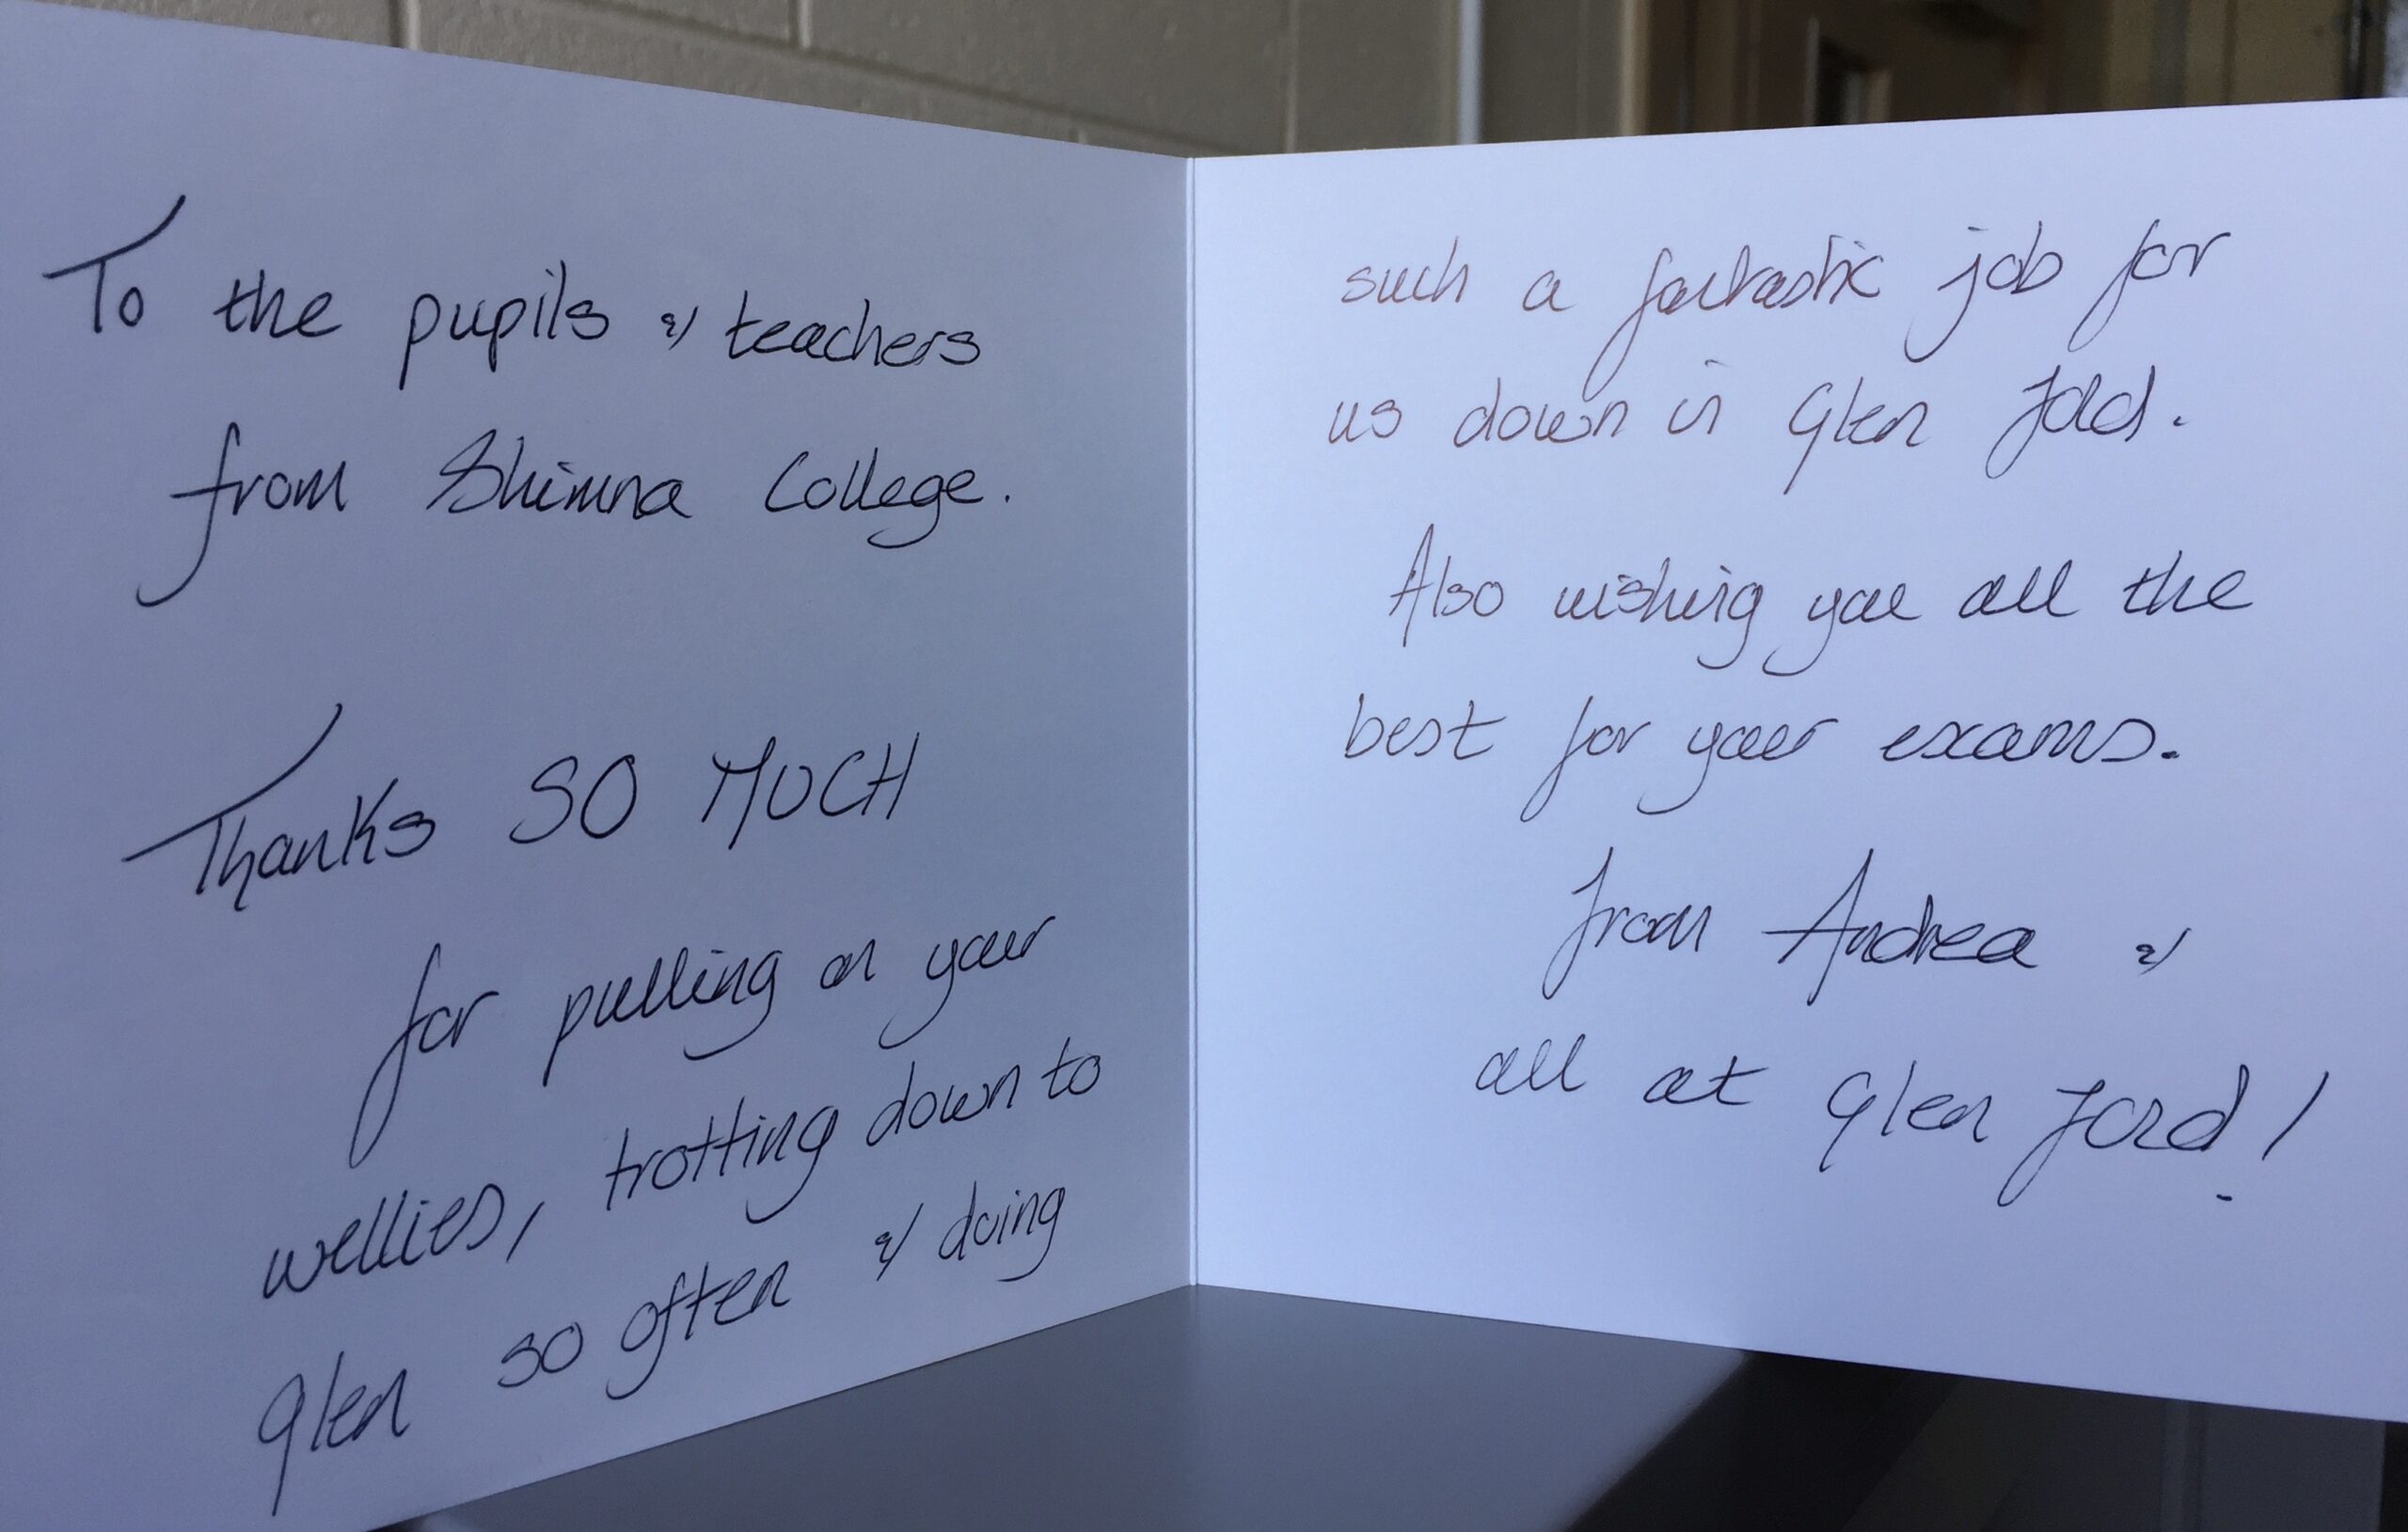 To the pupils & teachers
from Shimna College.
Thanks SO MUCH
for pulling on your
wellies, trotting down to
Glen so often & doing
such a fantastic job for
us down in Glen Ford.
Also wishing you all the
best for your exams.
from Andrea &
all at Glen Ford!